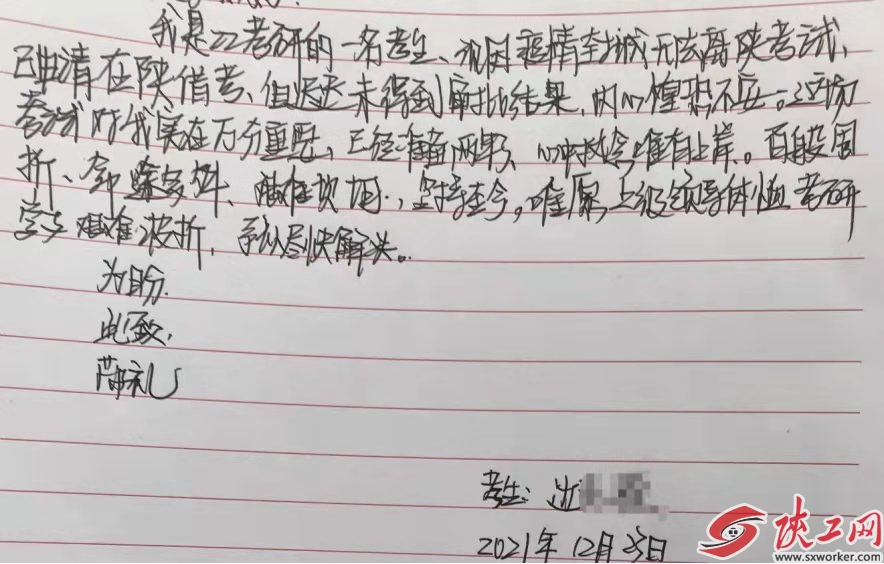 我是22考研的一名考生、现因疫情封城无法离陕考试、
已申请在陕借考、但迟迟未得到审批结果,内心惶恐不安。这场
考试对我实在万分重要、已经准备两年、心中执念唯有上岸。百般周
折、坚持至今。唯愿上级领导体恤考研
学子艰难波折,予以尽快解决。
为盼.
此致,
敬礼
考生:
2021年12月23日
陕工网
www.sxworker.com